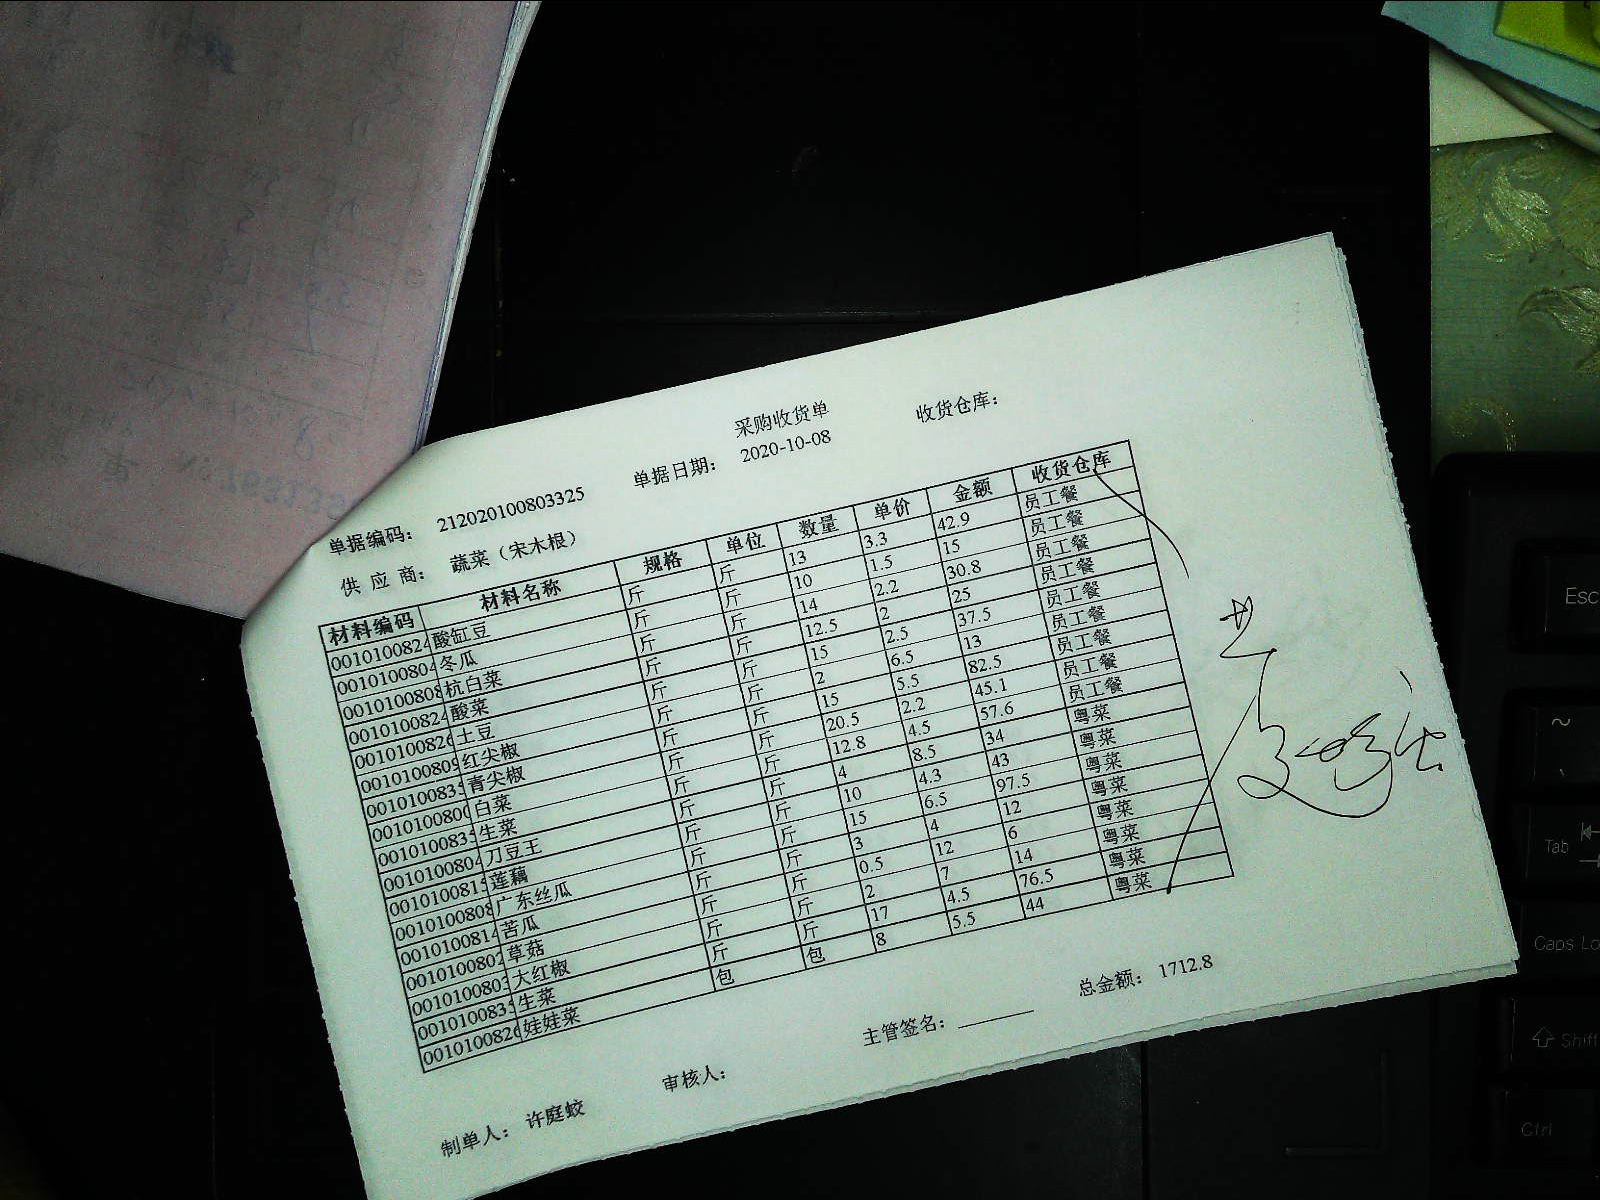 采购收货单
单据编码： 212020100803325 单据日期： 2020-10-08 收货仓库：
供 应 商： 蔬菜（宋木根）
材料编码 材料名称 规格 单位 数量 单价 金额 收货仓库
0010100824 酸缸豆 斤 斤 13 3.3 42.9 员工餐
0010100804 冬瓜 斤 斤 10 1.5 15 员工餐
0010100808 杭白菜 斤 斤 14 2.2 30.8 员工餐
0010100824 酸菜 斤 斤 12.5 2 25 员工餐
0010100826 土豆 斤 斤 15 2.5 37.5 员工餐
0010100809 红尖椒 斤 斤 2 6.5 13 员工餐
0010100835 青尖椒 斤 斤 15 5.5 82.5 员工餐
0010100800 白菜 斤 斤 20.5 2.2 45.1 员工餐
0010100835 生菜 斤 斤 12.8 4.5 57.6 员工餐
0010100804 刀豆王 斤 斤 4 8.5 34 粤菜
0010100815 莲藕 斤 斤 10 4.3 43 粤菜
0010100808 广东丝瓜 斤 斤 15 6.5 97.5 粤菜
0010100814 苦瓜 斤 斤 3 4 12 粤菜
0010100802 草菇 斤 斤 0.5 12 6 粤菜
0010100803 大红椒 斤 斤 2 7 14 粤菜
0010100835 生菜 斤 斤 17 4.5 76.5 粤菜
0010100826 娃娃菜 包 包 8 5.5 44 粤菜
制单人： 许庭蛟 审核人： 主管签名： 总金额： 1712.8
Esc
~
Tab
Caps Lo
Shift
Ctrl